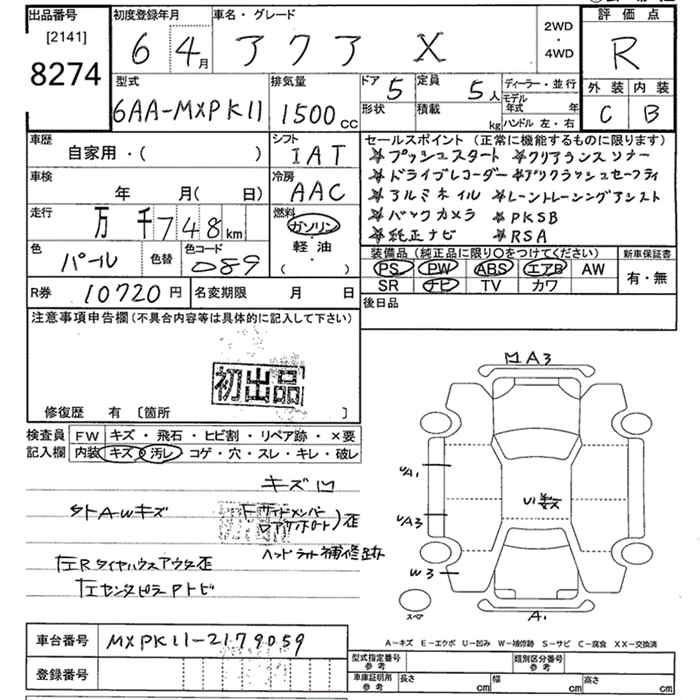 出品番号 初度登録年月 車名・グレード 2WD ・ 4WD 評価点
[2141]
8274 6 4月 アクア X R
外装 内装
C B
型式 排気量 ドア 定員 ディーラー・並行
6AA-MXPK11 1500CC 5 5人
形状 積載 kg モデル年式 年
ハンドル 左・右
車歴 自家用・( )
シフト IAT
車検 年 月( 日)
冷房 AAC
走行 万千748km
燃料 ガソリン・軽油・( )
色 パール 色替 色コード 089
R券 10720円 名変期限 月 日
セールスポイント (正常に機能するものに限ります)
☆プッシュスタート ☆クリアランスソナー
☆ドライブレコーダー ☆プリクラッシュセーフティ
☆アルミホイル ☆レーントレーシングアシスト
☆バックカメラ ☆PKSB
☆純正ナビ ☆RSA
装備品 (純正品に限り○をつけてください) 新車保証書
PS PW ABS エアB AW 有・無
SR ナビ TV カワ
後日品
注意事項申告欄(不具合内容等は具体的に記入して下さい)
初出品
修復歴 有 [箇所 ]
検査員記入欄 FW キズ・飛石・ヒビ割・リペア跡・×要
内装 キズ・汚レ・コゲ・穴・スレ・キレ・破レ
キズ凹
タトAwキズ
Fサイドメンバー
ロアサポート)歪
ヘッドライト補修跡
左Rタイヤハウスアウタ歪
左センタピラアトビ
MA3
UA1
UA3
W3
A1
スペア
A-キズ E-エクボ U-凹み W-補修跡 S-サビ C-腐食 XX-交換済
車台番号 MXPK11-2179059
登録番号
型式指定番号 参考 類別区分番号 参考
車庫証明用 参考 長さ cm 幅 cm 高さ cm